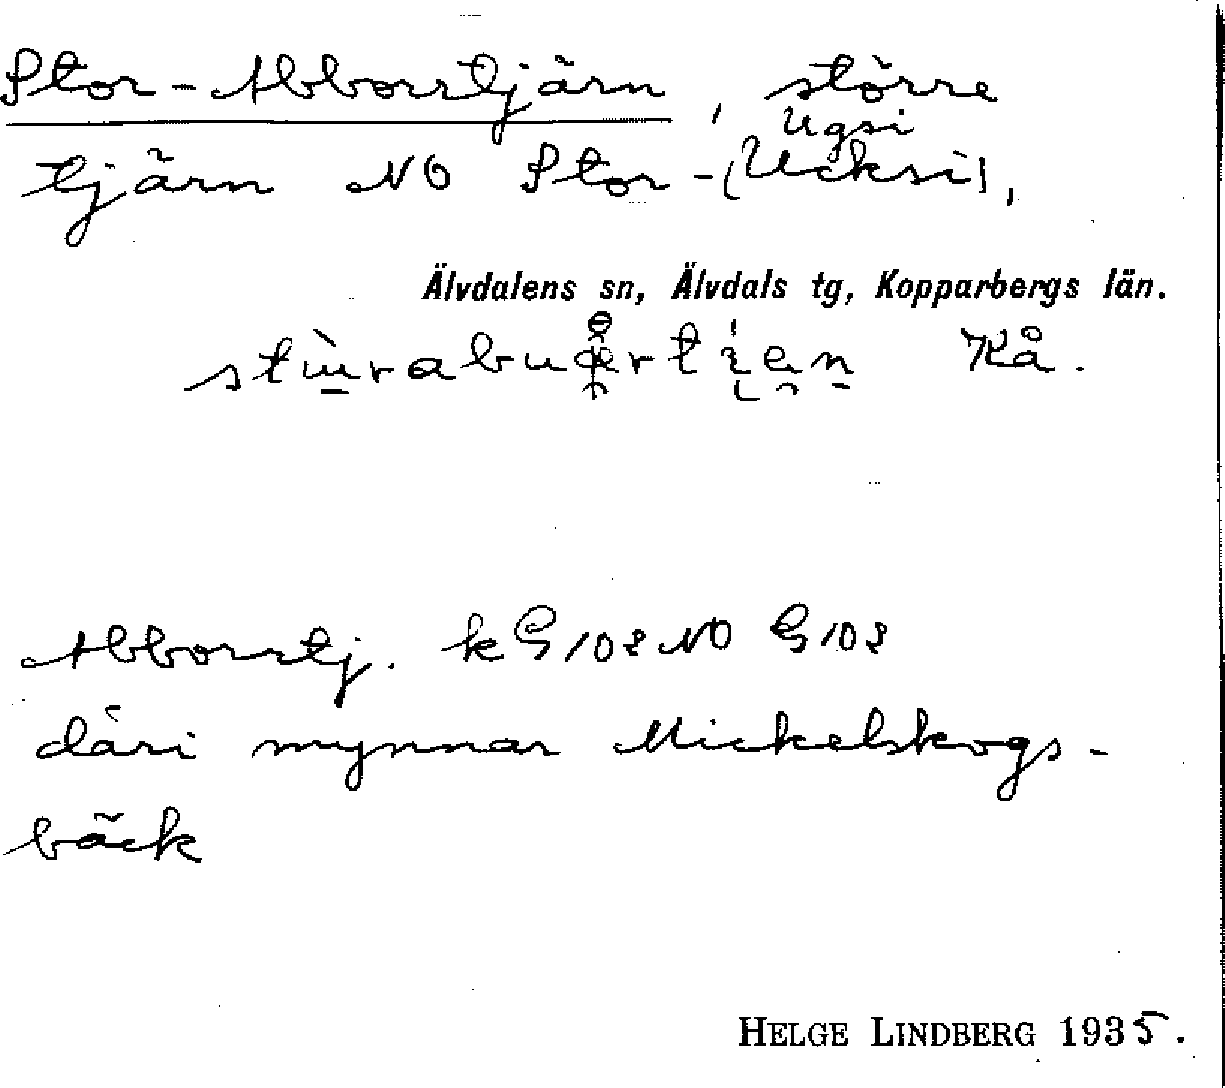 Stor-Abborrtjärn, större
Ugsi
tjärn NO Stor-(Ucksi),
Älvdalens sn, Älvdals tg, Kopparbergs län.
Kå.
Abborrtj. k G 108 NO G 108
däri mynnar Mickelskogs-
bäck
HELGE LINDBERG 1935.